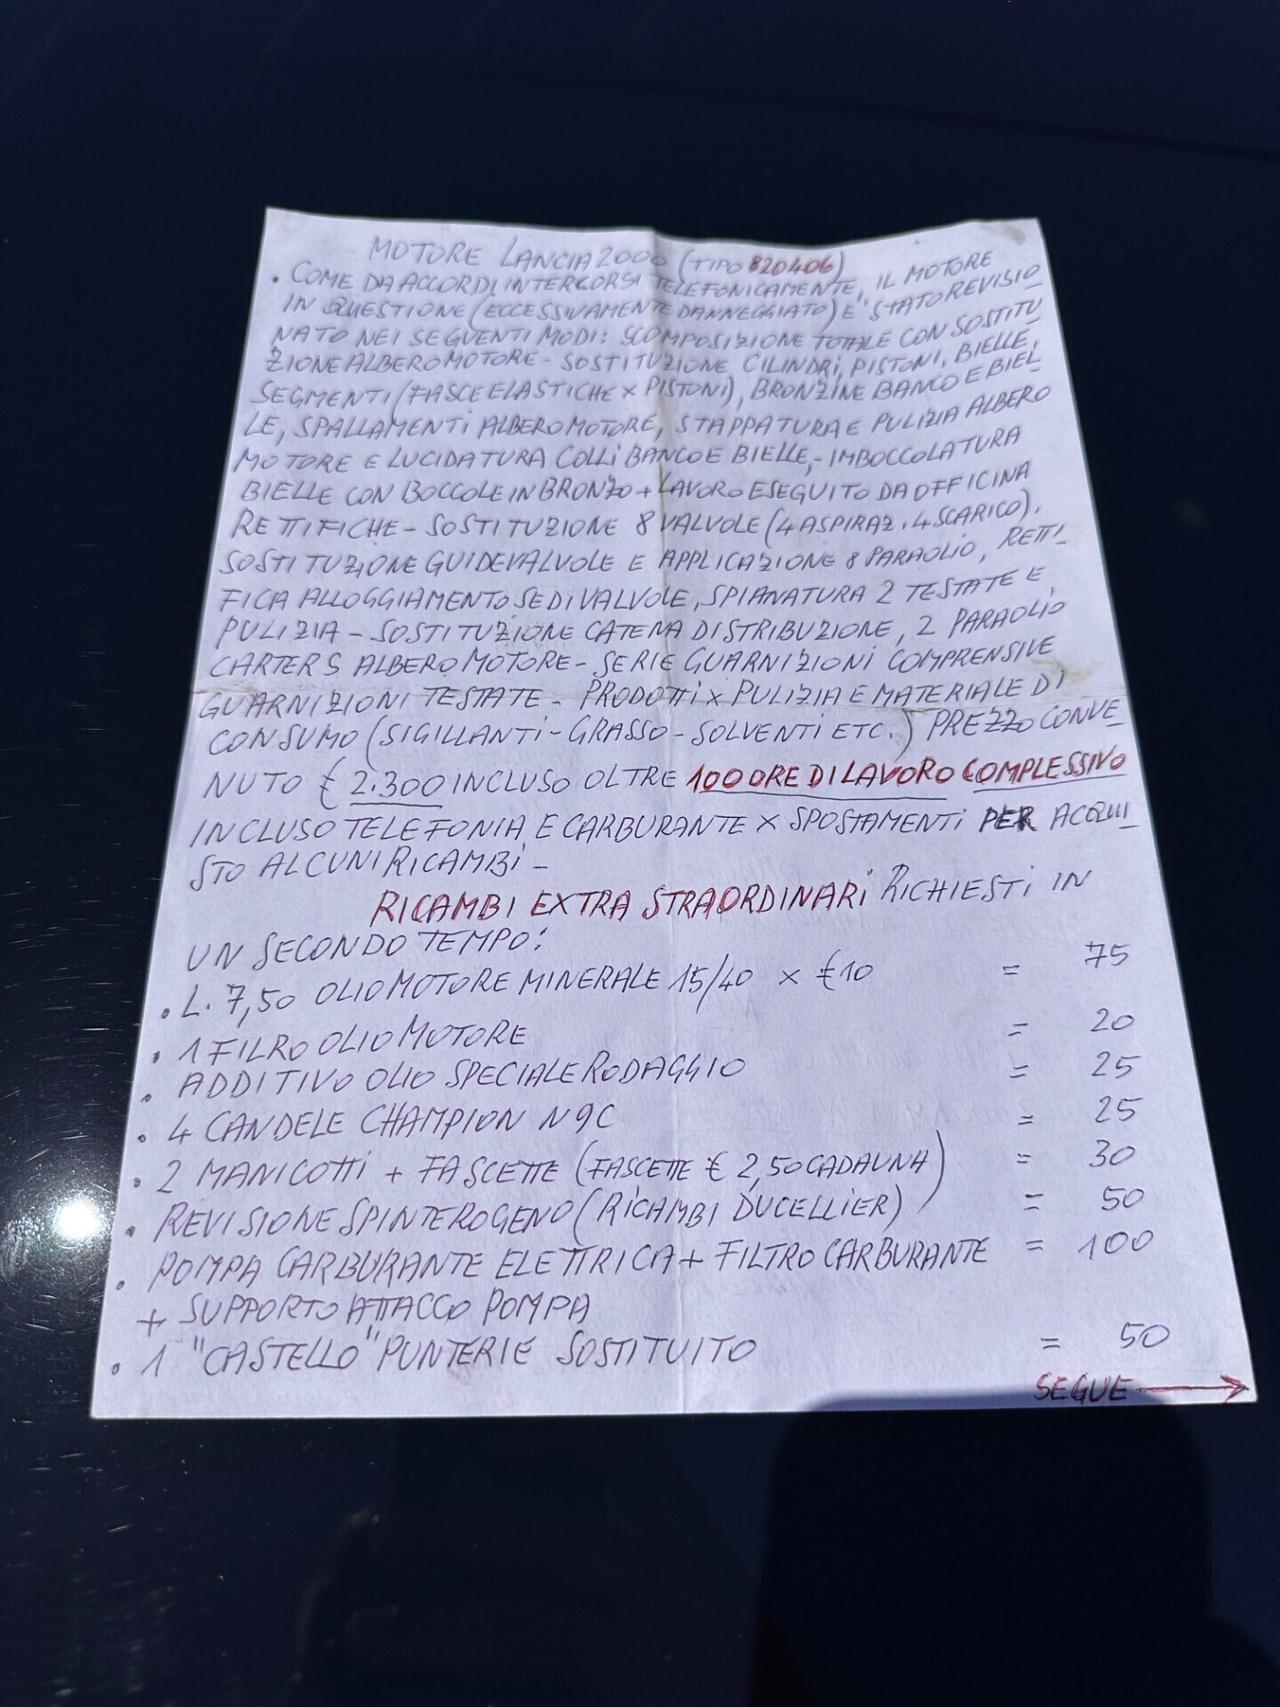 MOTORE LANCIA 2000 (TIPO 820406)
• COME DA ACCORDI INTERCORSI TELEFONICAMENTE, IL MOTORE
IN QUESTIONE (ECCESSIVAMENTE DANNEGGIATO) E' STATO REVISIO
NATO NEI SEGUENTI MODI: SCOMPOSIZIONE TOTALE CON SOSTITU
ZIONE ALBERO MOTORE - SOSTITUZIONE CILINDRI, PISTONI, BIELLE,
SEGMENTI (FASCE ELASTICHE x PISTONI), BRONZINE BANCO E BIEL
LE, SPALLAMENTI ALBERO MOTORE, STAPPATURA E PULIZIA ALBERO
MOTORE E LUCIDATURA COLLI BANCO E BIELLE,- IMBOCCOLATURA
BIELLE CON BOCCOLE IN BRONZO + LAVORO ESEGUITO DA OFFICINA
RETTIFICHE - SOSTITUZIONE 8 VALVOLE (4 ASPIRAZ. 4 SCARICO).
SOSTITUZIONE GUIDEVALVOLE E APPLICAZIONE 8 PARAOLIO, RETTI-
FICA ALLOGGIAMENTO SEDI VALVOLE, SPIANATURA 2 TESTATE E
PULIZIA - SOSTITUZIONE CATENA DISTRIBUZIONE, 2 PARAOLIO
CARTERS ALBERO MOTORE - SERIE GUARNIZIONI COMPRENSIVE
GUARNIZIONI TESTATE - PRODOTTI x PULIZIA E MATERIALE DI
CONSUMO (SIGILLANTI - GRASSO - SOLVENTI ETC.) PREZZO CONVE
NUTO € 2.300 INCLUSO OLTRE 100 ORE DI LAVORO COMPLESSIVO
INCLUSO TELEFONIA E CARBURANTE x SPOSTAMENTI PER ACQUI
STO ALCUNI RICAMBI -
RICAMBI EXTRA STRAORDINARI RICHIESTI IN
UN SECONDO TEMPO:
• L. 7,50 OLIO MOTORE MINERALE 15/40 x € 10 = 75
• 1 FILRO OLIO MOTORE = 20
• ADDITIVO OLIO SPECIALE RODAGGIO = 25
• 4 CANDELE CHAMPION N9C = 25
• 2 MANICOTTI + FASCETTE (FASCETTE € 2,50 CADAUNA) = 30
• REVISIONE SPINTEROGENO (RICAMBI DUCELLIER) = 50
• POMPA CARBURANTE ELETTRICA + FILTRO CARBURANTE = 100
+ SUPPORTO ATTACCO POMPA
• 1 "CASTELLO" PUNTERIE SOSTITUITO = 50
SEGUE →